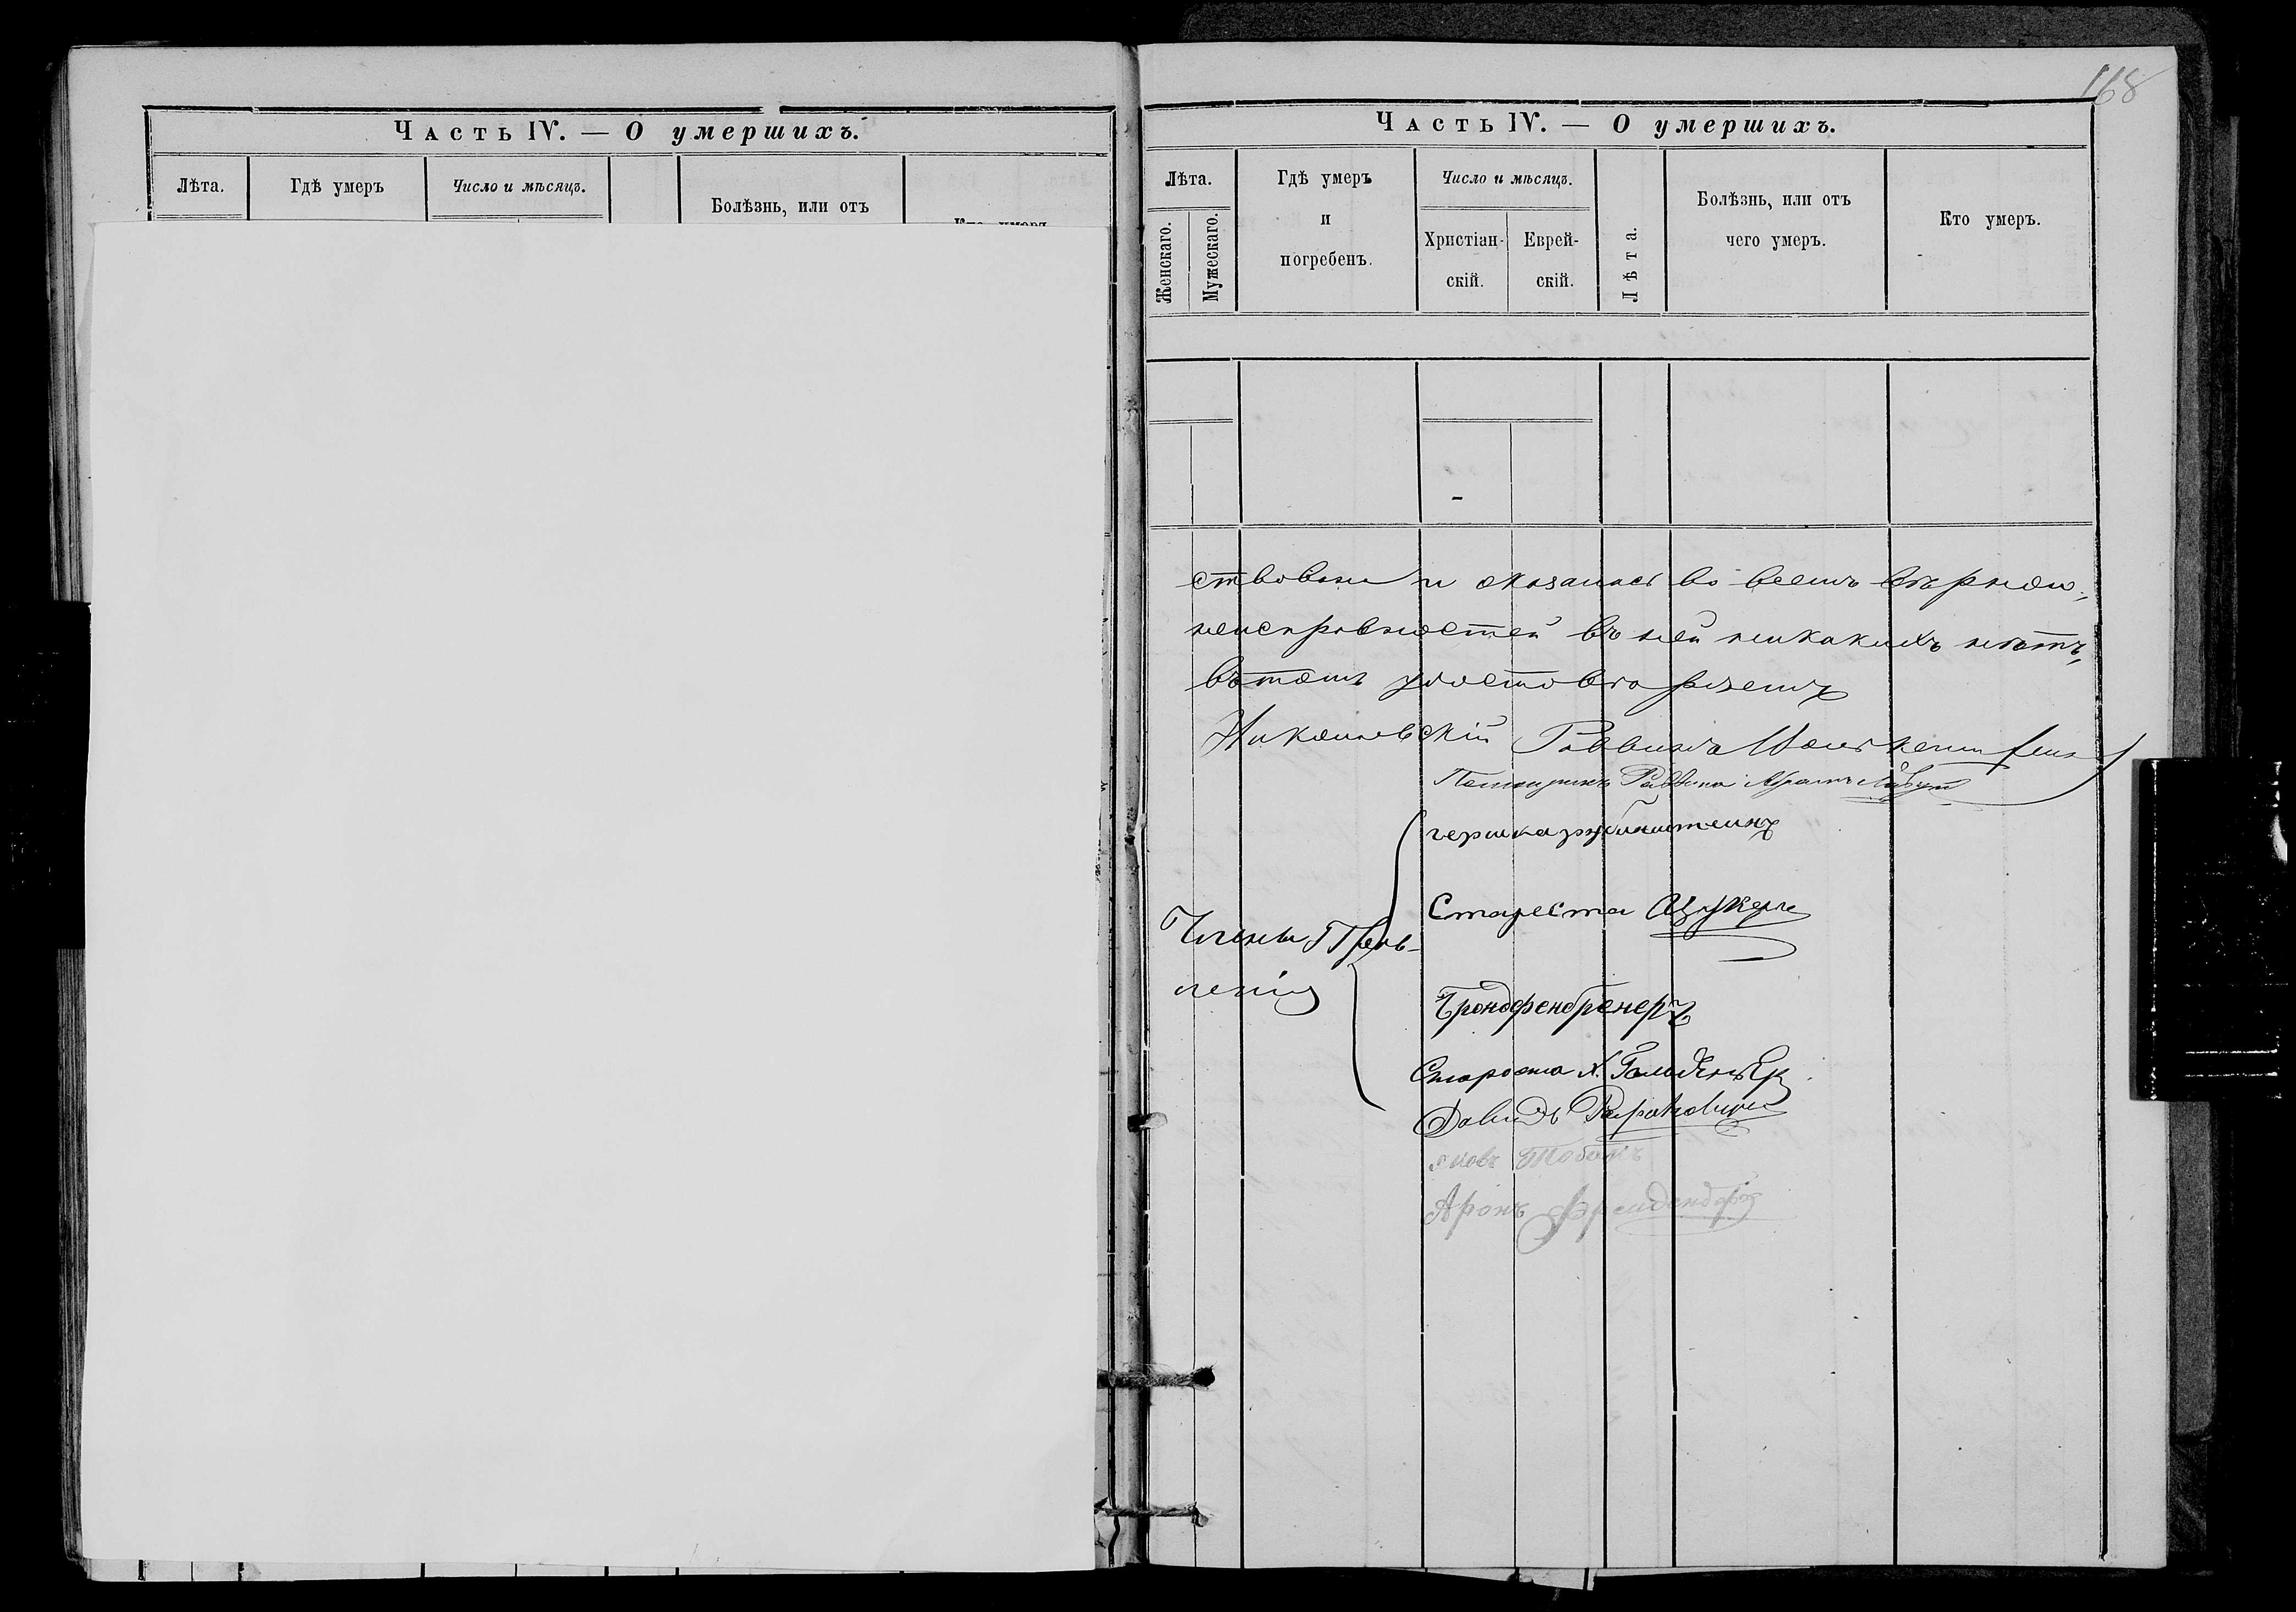 Часть IV. — О умершихъ.
Лѣта.
Гдѣ умеръ
Число и мѣсяцъ.
Болѣзнь, или отъ
168
Часть IV. — О умершихъ.
Лѣта.
Женскаго.
Мужескаго.
Гдѣ умеръ
и
погребенъ.
Число и мѣсяцъ.
Христіан-
скій.
Еврей-
скій.
Лѣта.
Болѣзнь, или отъ
чего умеръ.
Кто умеръ.
ствована и оказалась во всемъ вѣрною,
неисправностей въ ней никакихъ нѣтъ,
въ томъ удостовѣряемъ
Николаевскій Раввинъ
Помощникъ Раввина Абрамъ
Члены Прав-
ленія
Староста Цукеръ
Бронфенбренеръ
Староста Х.
Давидъ Рапопортъ
Яковъ
Аронъ